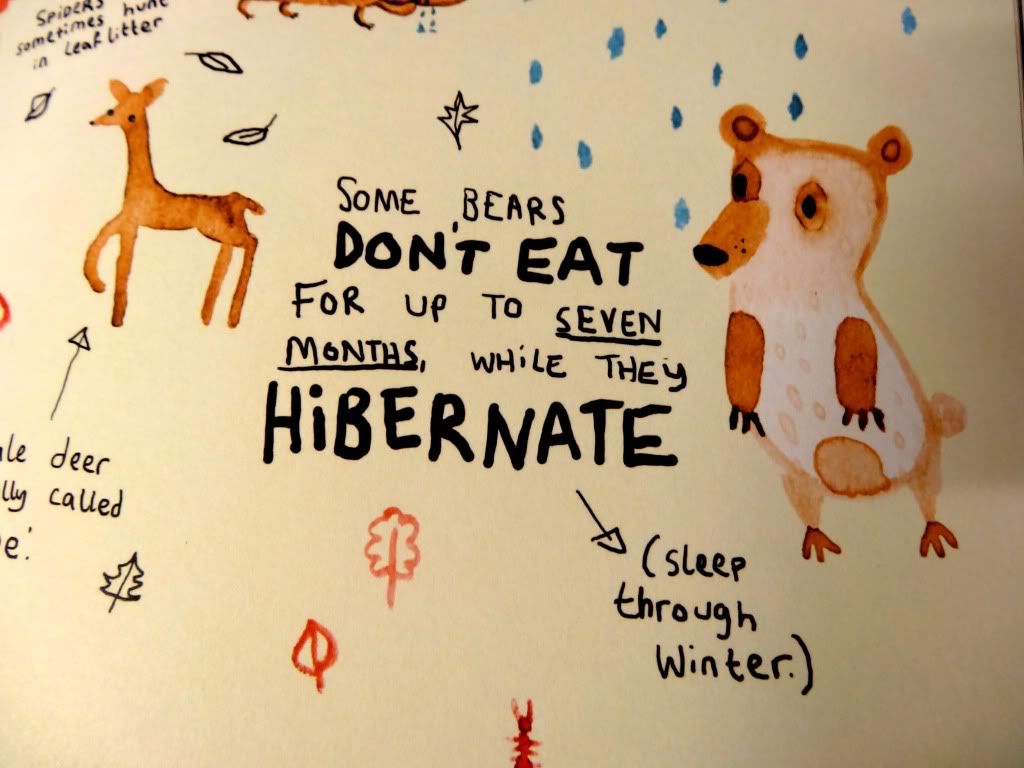 SPIDERS
sometimes hunt
in leaf litter
SOME BEARS
DON'T EAT
FOR UP TO SEVEN
MONTHS, WHiLE THEY
HiBERNATE
(sleep
through
Winter.)
deer
called